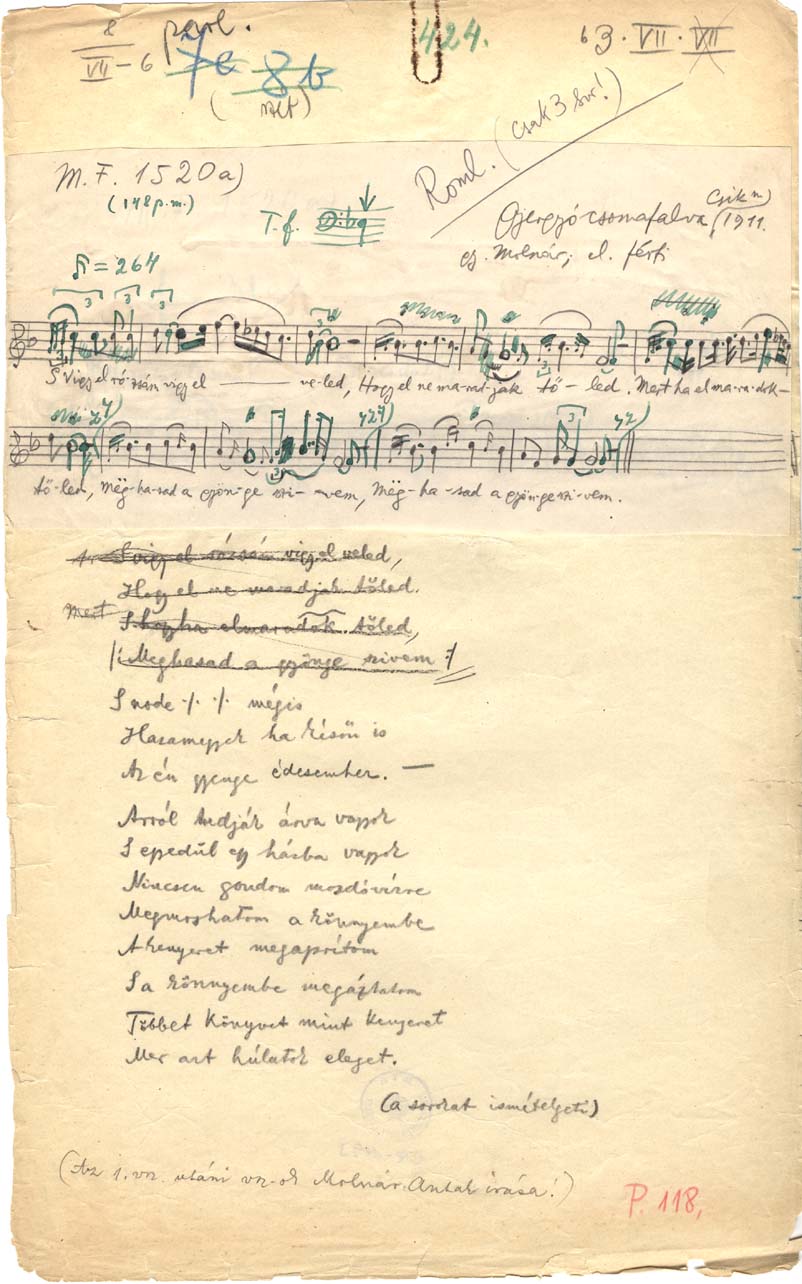 8
VII – 6
parl.
424.
63. VII. VII
7c 8b
M. F. 1520a)
(148 p.m.)
Roml. (csak 3 sor!)
T. f.
Gyergyócsomafalva (Csík m) 1911.
gy. Molnár; el. férfi
= 264
S Vigy el ró-zsám vigy el ve-led, Hogy el ne ma-rad-jak tő-led. Mert ha el ma-ra-dok-
tő-led, Még-ha-sad a gyön-ge szi-vem, Még-ha-sad a gyön-ge szi-vem.
1. S vigy el rózsám vigy el veled,
Hogy el ne maradjak tőled.
Mert S hogyha elmaradok tőled,
/: Meghasad a gyönge szivem :/
S node ./. ./. mégis
Hazamegyek ha későn is
Az én gyenge édesember. —
Arról tudják árva vagyok
S egyedűl egy házba vagyok
Nincsen gondom mozdóvízre
Megmoshatom a könnyembe
A kenyeret megaprítom
S a könnyembe megáztatom
Többet könyvet mint kenyeret
Mer azt húlatok eleget.
(a sorokat ismételgeti)
(Az 1. vsz. utáni vsz-ok Molnár Antal írása!)
P. 118,